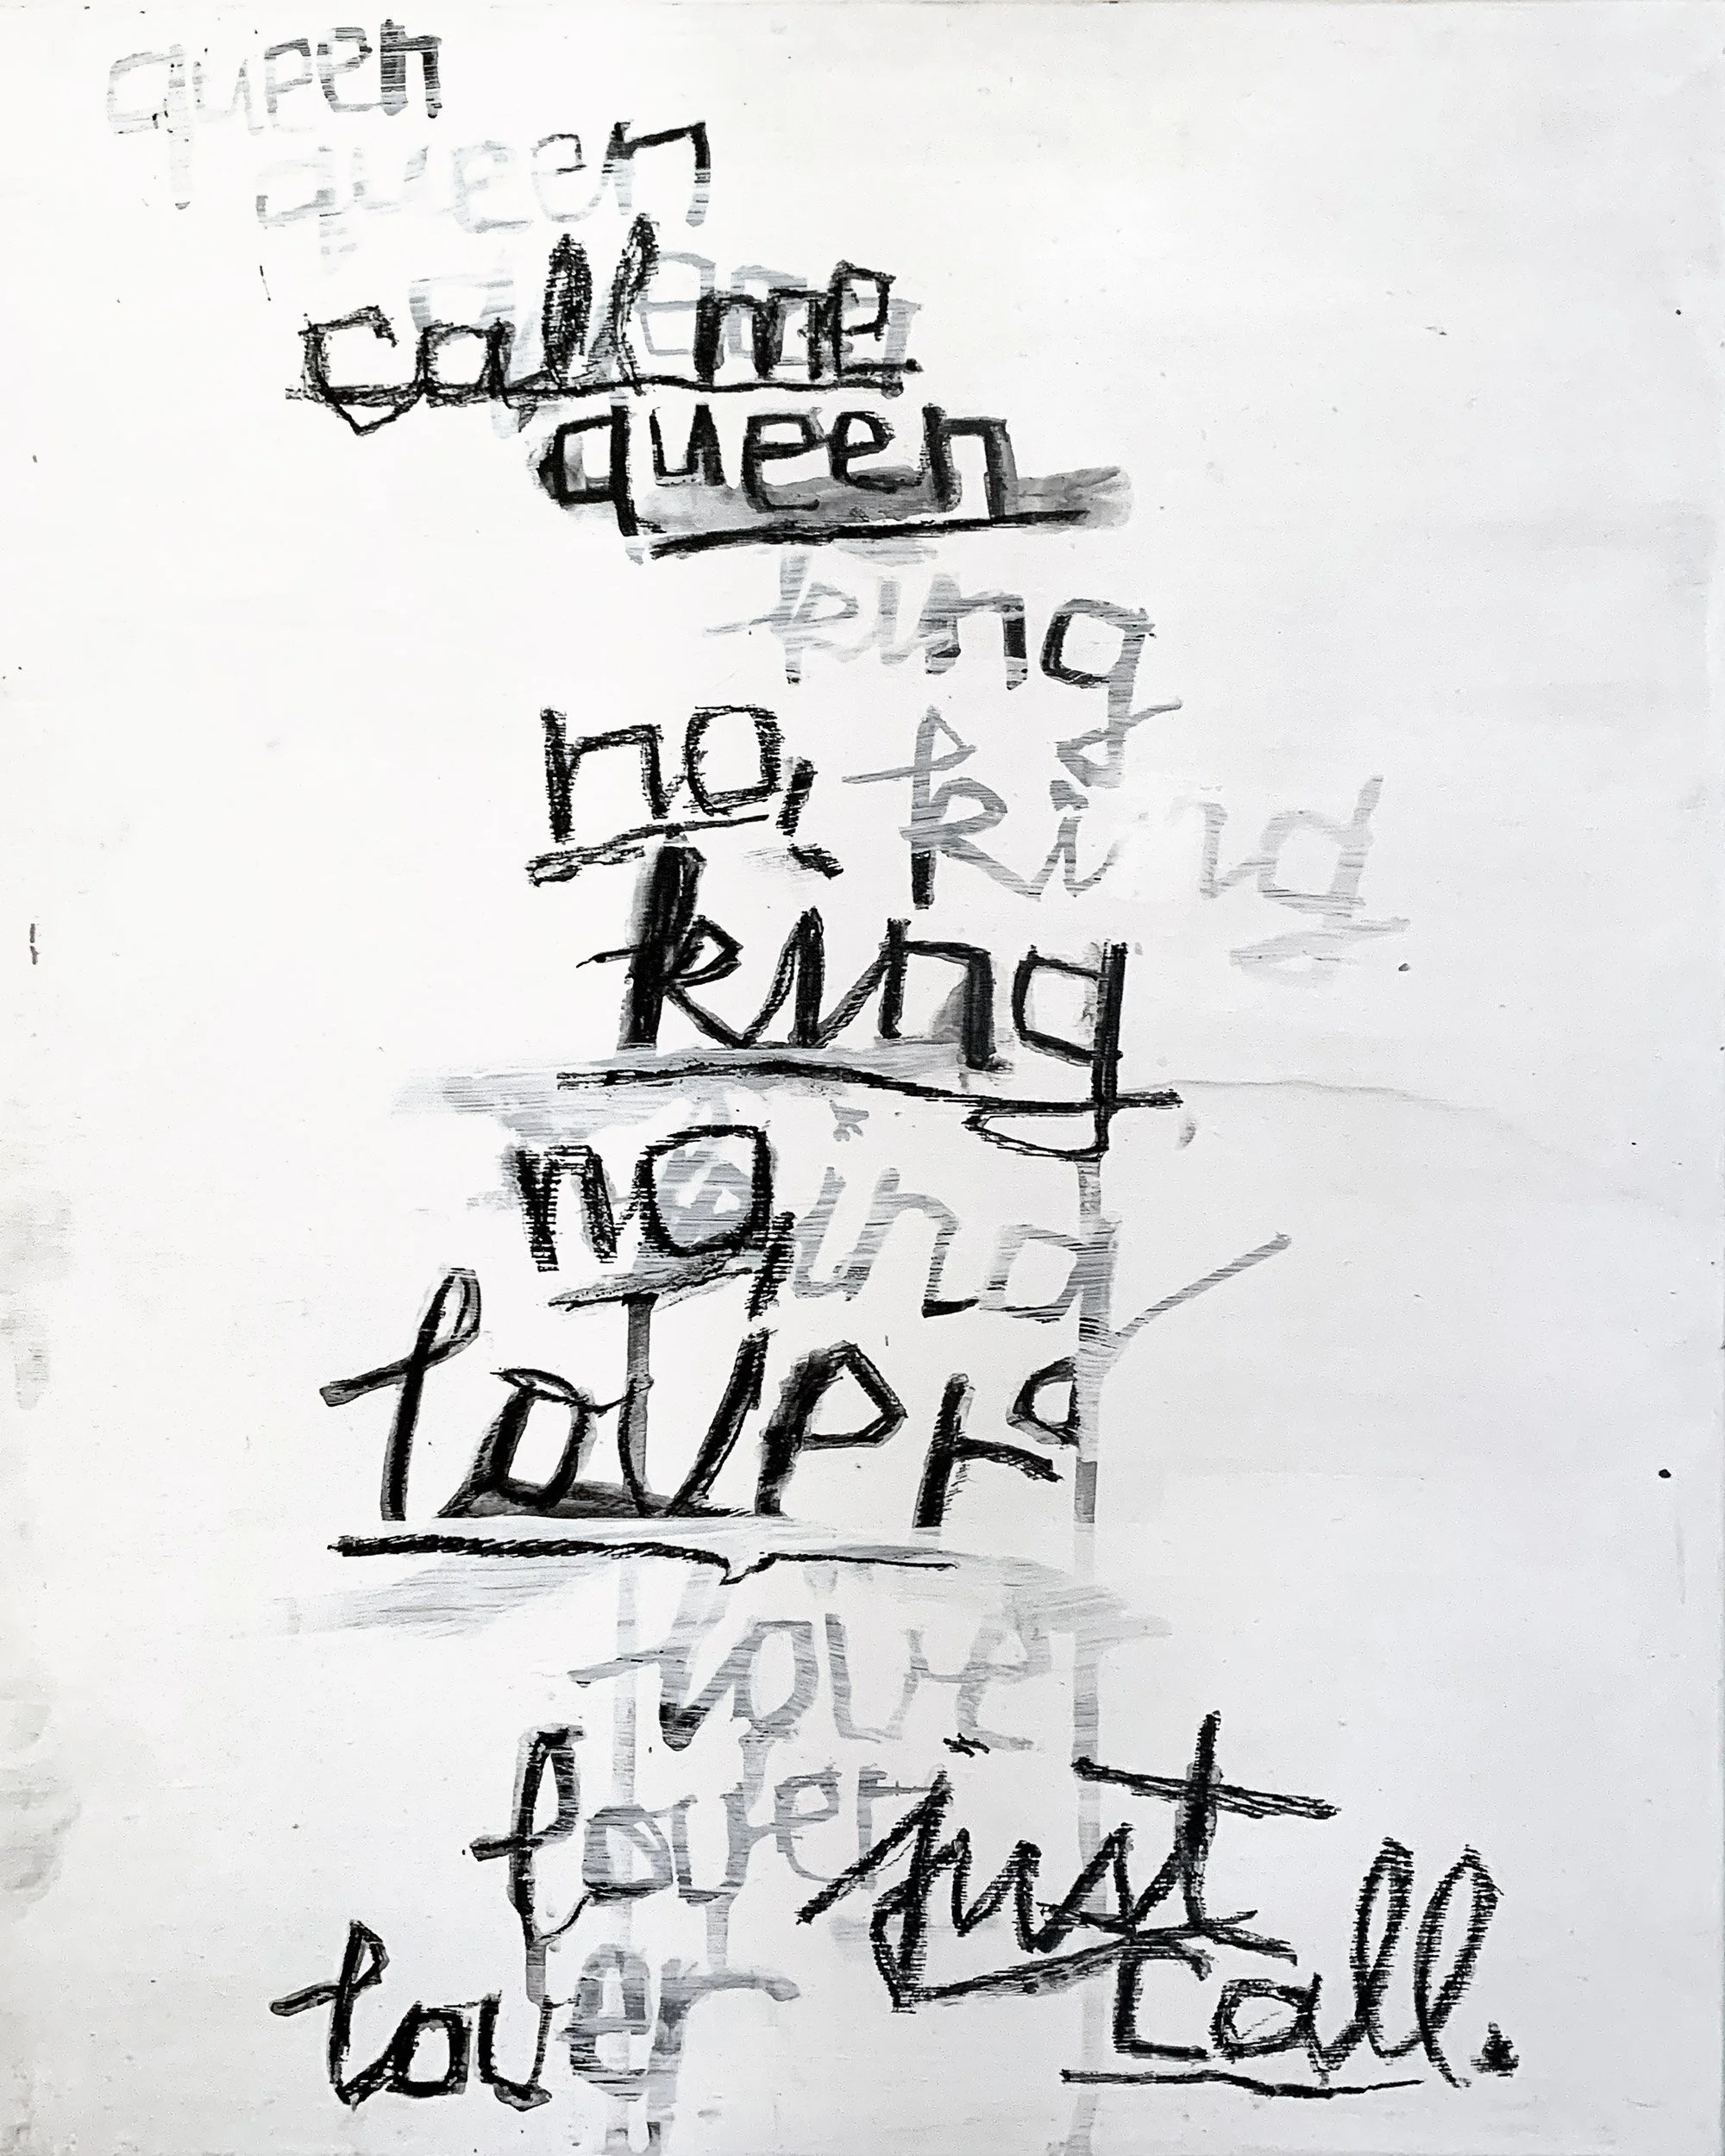 queen
queen
queen
call me
queen
king
no, king
king
no, king
lover
lover
lover just
lover call.